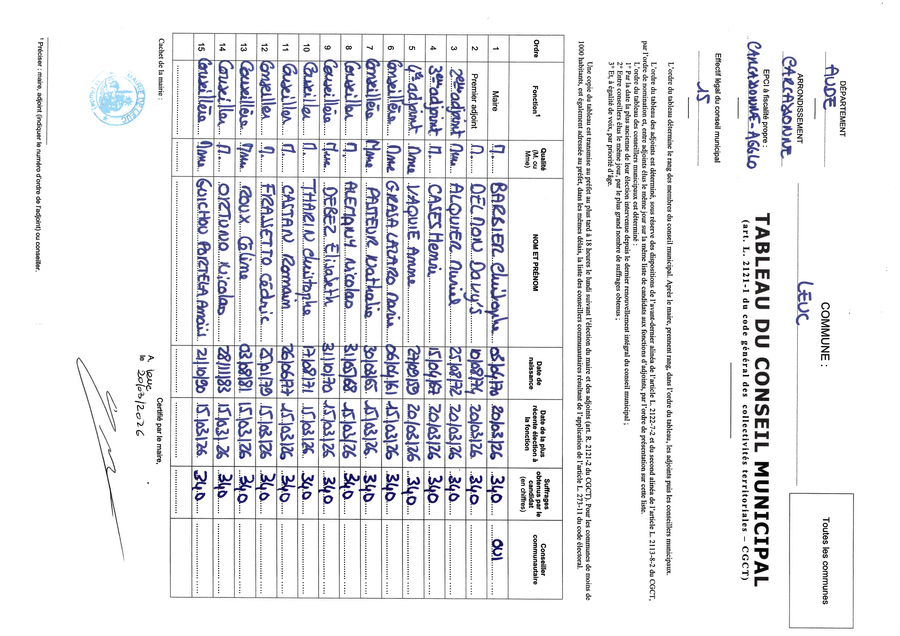 DÉPARTEMENT
AUDE
ARRONDISSEMENT
CARCASSONNE
EPCI à fiscalité propre :
CARCASSONNE-AGGLO
Effectif légal du conseil municipal
15
COMMUNE :
LEUC
Toutes les communes
TABLEAU DU CONSEIL MUNICIPAL
(art. L. 2121-1 du code général des collectivités territoriales – CGCT)
L'ordre du tableau détermine le rang des membres du conseil municipal. Après le maire, prennent rang, dans l'ordre du tableau, les adjoints puis les conseillers municipaux.
L'ordre du tableau des adjoints est déterminé, sous réserve des dispositions de l'avant-dernier alinéa de l'article L. 2122-7-2 et du second alinéa de l'article L. 2113-8-2 du CGCT,
par l'ordre de nomination et, entre adjoints élus le même jour sur la même liste de candidats aux fonctions d'adjoints, par l'ordre de présentation sur cette liste.
L'ordre du tableau des conseillers municipaux est déterminé :
1° Par la date la plus ancienne de leur élection intervenue depuis le dernier renouvellement intégral du conseil municipal ;
2° Entre conseillers élus le même jour, par le plus grand nombre de suffrages obtenus ;
3° Et, à égalité de voix, par priorité d'âge.
Une copie du tableau est transmise au préfet au plus tard à 18 heures le lundi suivant l'élection du maire et des adjoints (art. R. 2121-2 du CGCT). Pour les communes de moins de
1000 habitants, est également adressée au préfet, dans les mêmes délais, la liste des conseillers communautaires résultant de l'application de l'article L. 273-11 du code électoral.
Ordre Fonction¹ Qualité (M. ou Mme) NOM ET PRÉNOM Date de naissance Date de la plus récente élection à la fonction Suffrages obtenus par le candidat (en chiffres) Conseiller communautaire
1 Maire M. BARRIER Christophe 20/03/26 340 OUI
2 Premier adjoint M. 10/08/74 20/03/26 340
3 2ème adjoint Mme ALQUIER Muriel 20/03/26 340
4 3ème adjoint M. CASES Hervé 15/04/67 20/03/26 340
5 4ème adjoint Mme VAQUIÉ Annie 20/03/26 340
6 Conseillère Mme 06/04/61 15/03/26 340
7 Conseillère Mme PASTEUR Nathalie 30/03/65 15/03/26 340
8 Conseiller M. ALEMANY Nicolas 31/05/68 15/03/26 340
9 Conseillère Mme DEBEZ Elisabeth 31/10/70 15/03/26 340
10 Conseiller M. THARIN Christophe 17/08/71 15/03/26 340
11 Conseiller M. CASTAN Romain 26/06/77 15/03/26 340
12 Conseiller M. FRASSETO Cédric 15/03/26 340
13 Conseillère Mme ROUX Céline 03/08/81 15/03/26 340
14 Conseiller M. ORTUNO Nicolas 28/11/83 15/03/26 340
15 Conseillère Mme GUICHOU PORTELA 21/10/90 15/03/26 340
Cachet de la mairie :
Certifié par le maire,
A, Leuc
le 20/03/2026
¹ Préciser : maire, adjoint (indiquer le numéro d'ordre de l'adjoint) ou conseiller.